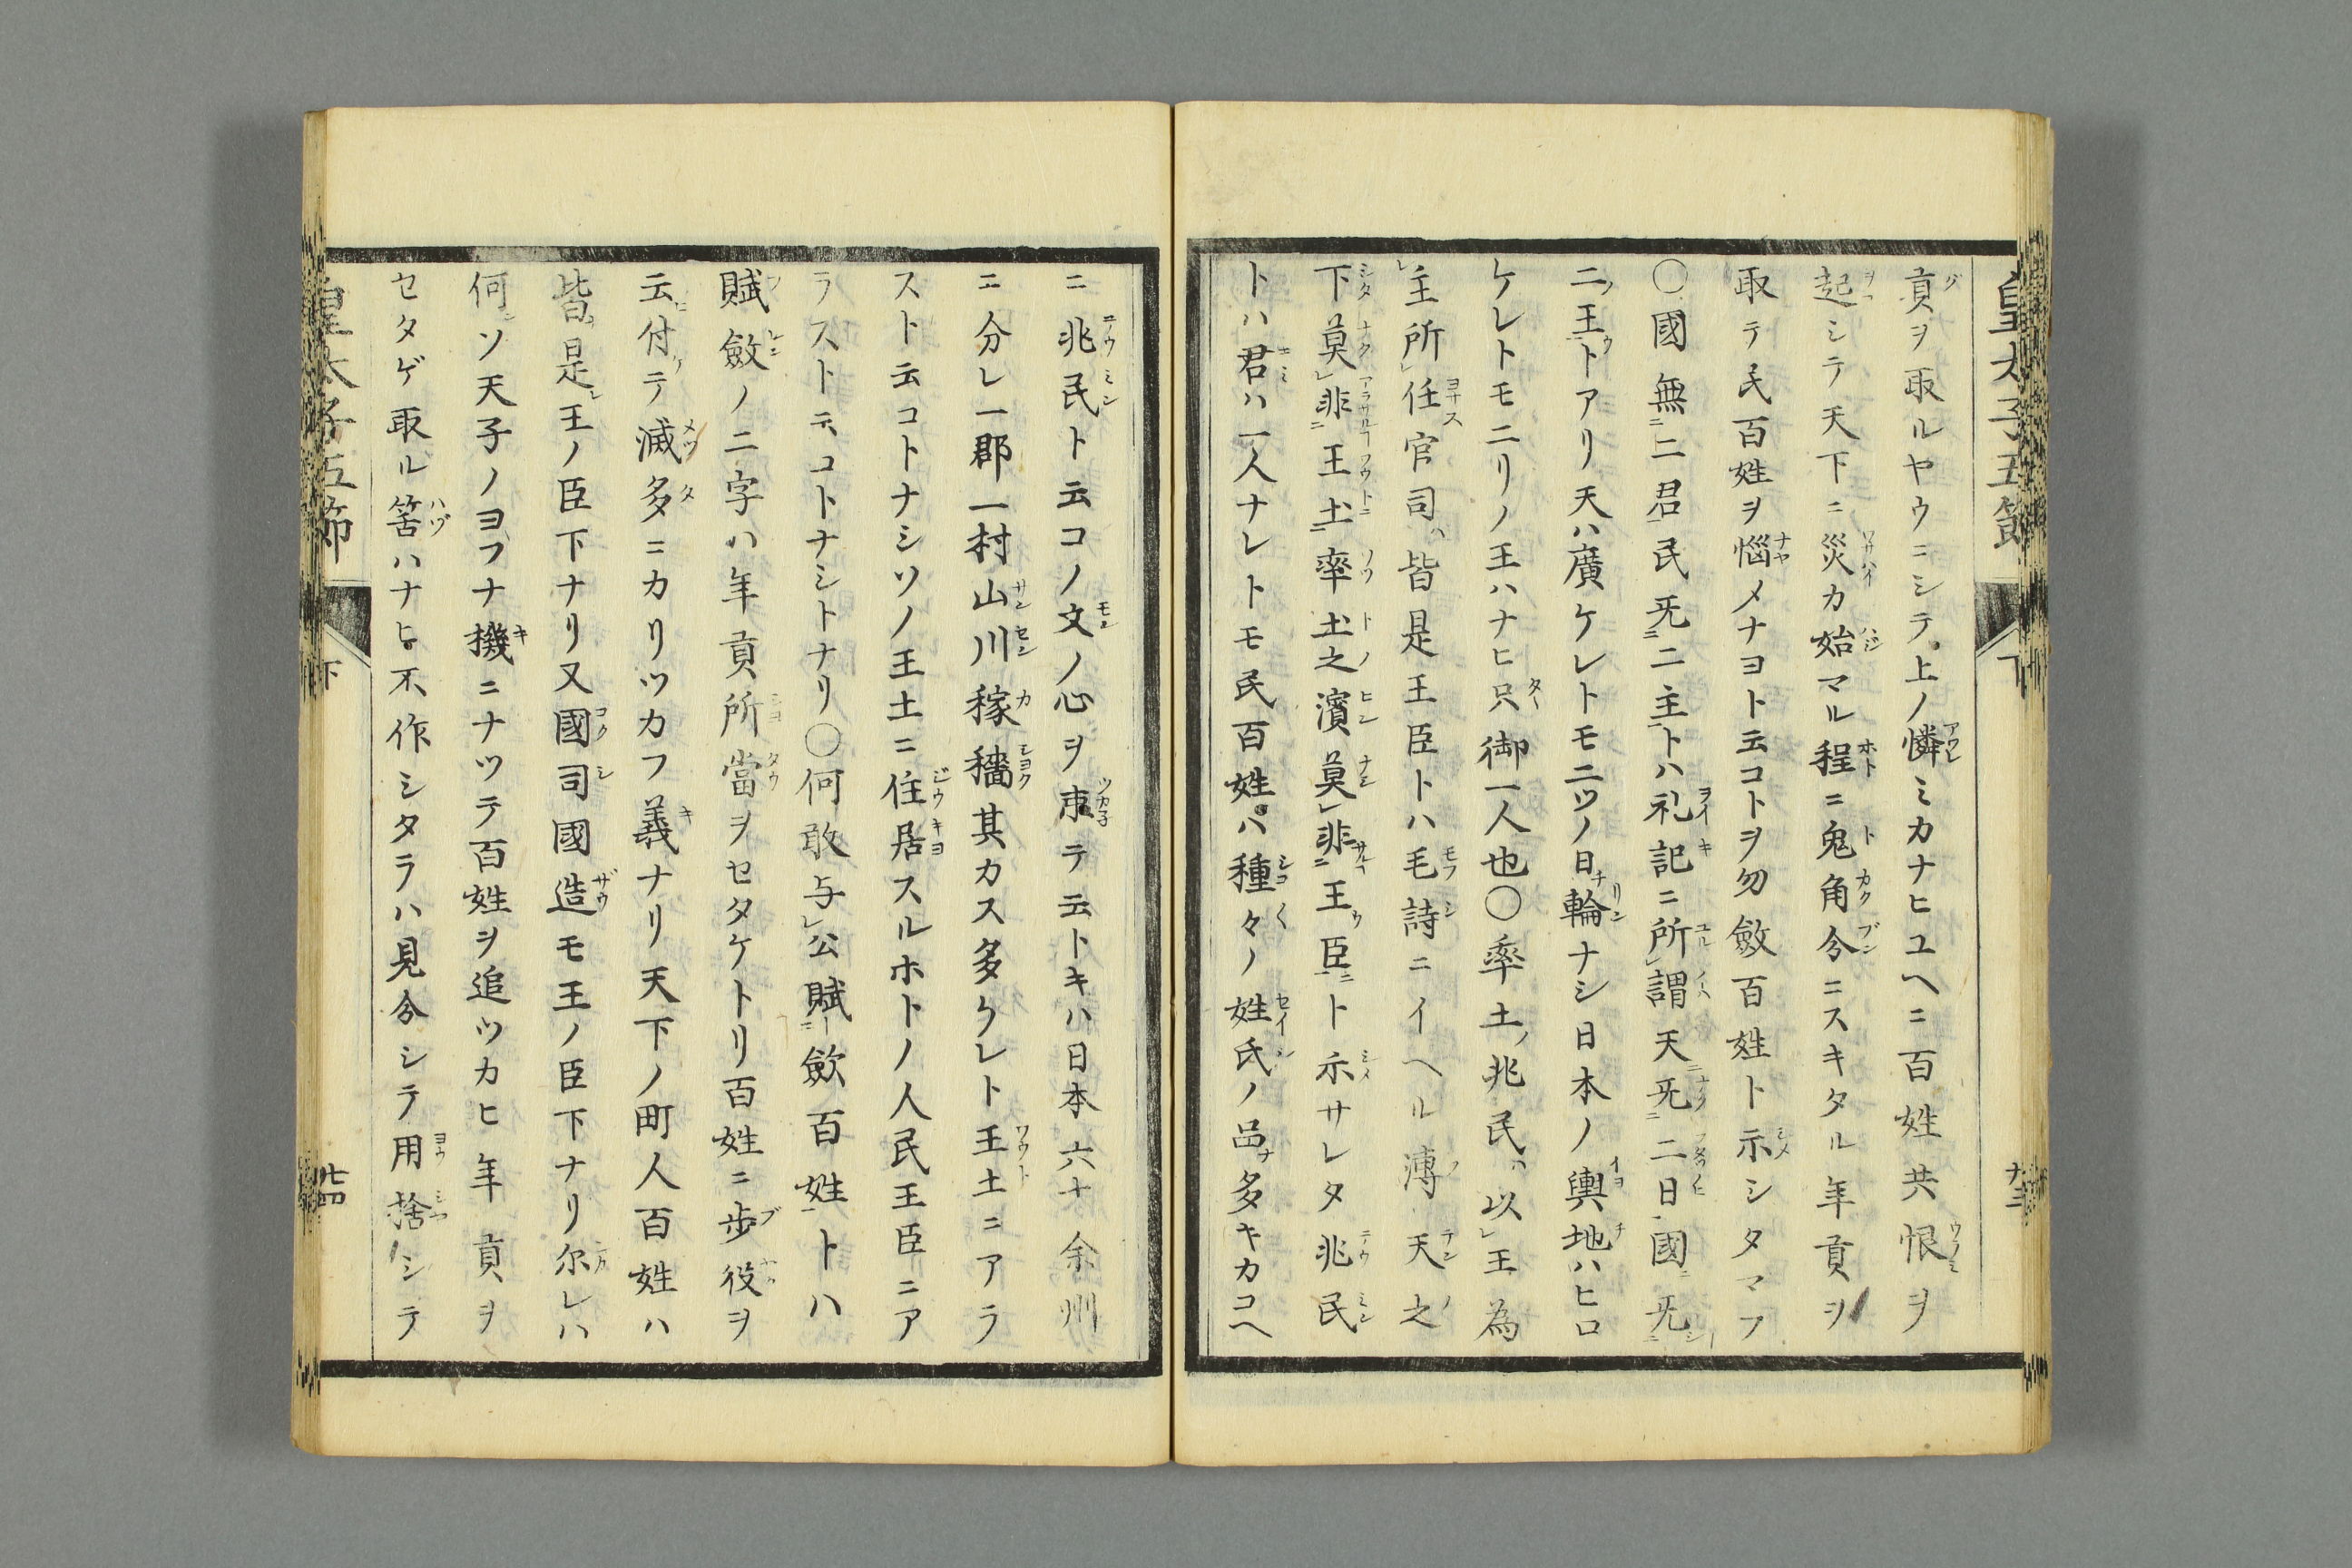 皇太子五節
下
貢ヲ取ルヤウニシテ上ノ憐ミカナヒユヘニ百姓共恨ヲ
起シテ天下ニ災カ始マル程ニ兎角分ニスキタル年貢ヲ
取テ民百姓ヲ惱メナヨト云コトヲ勿斂百姓ト示シタマフ
○國無二君民旡二主トハ礼記ニ所謂天旡二日國旡
二王トアリ天ハ廣ケレトモ二ツノ日輪ナシ日本ノ輿地ハヒロ
ケレトモ二リノ王ハナヒ只御一人也○率土ノ兆民ハ以王為
主所任官司ハ皆是王臣トハ毛詩ニイヘル溥天之
下莫非王土率土之濱莫非王臣ト示サレタ兆民
トハ君ハ一人ナレトモ民百姓ハ種々ノ姓氏ノ品多キカコヘ
ニ兆民ト云コノ文ノ心ヲ束テ云トキハ日本六十余州
ニ分レ一郡一村山川稼穡其カス多クレト王土ニアラ
スト云コトナシソノ王土ニ住居スルホトノ人民王臣ニア
ラスト云コトナシトナリ○何敢与公賦歛百姓トハ
賦斂ノ二字ハ年貢所當ヲセタケトリ百姓ニ歩役ヲ
云付テ滅多ニカリツカフ義ナリ天下ノ町人百姓ハ
皆是王ノ臣下ナリ又國司國造モ王ノ臣下ナリ尓レハ
何ソ天子ノヨフナ機ニナツテ百姓ヲ追ツカヒ年貢ヲ
セタゲ取ル筈ハナヒ不作シタラハ見分シテ用捨シテ
皇太子五節
下
廿四